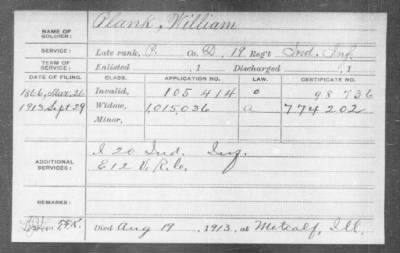 NAME OF SOLDIER: Alank, William
SERVICE: Late rank, P. Co. D, 19 Reg't Ind. Inf.
TERM OF SERVICE: Enlisted , 1 Discharged , 1
DATE OF FILING. CLASS. APPLICATION NO. LAW. CERTIFICATE NO.
1866, Mar. 26 Invalid, 105 414 98 736
1913 Sept. 29 Widow, 1,015,036 a 774 202
Minor,
ADDITIONAL SERVICES: I 20 Ind. Inf.
E 12 V. R. Co.
REMARKS:
Died Aug 19, 1913, at Metcalf, Ill.